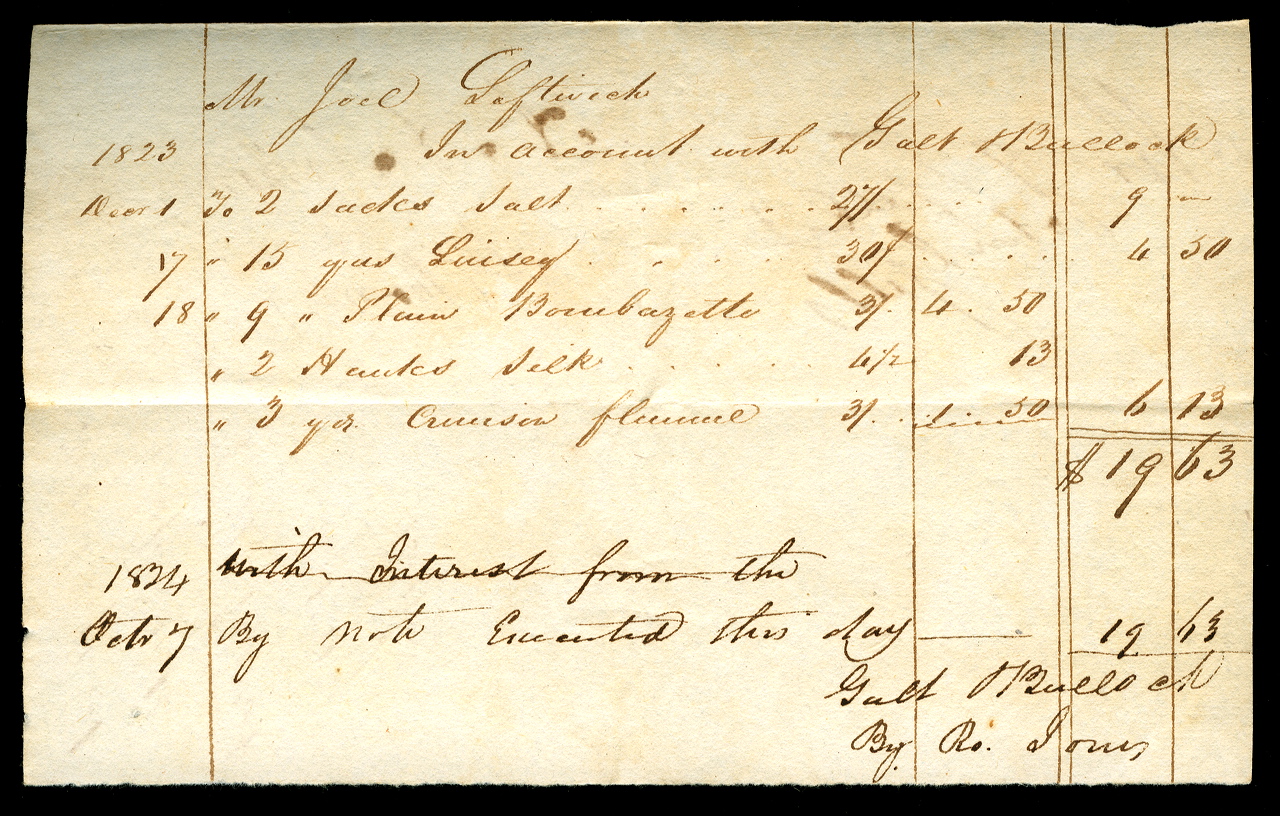 Mr. Joel Leftwich
1823 In account with Galt & Bullock
Decr 1 To 2 Sacks Salt 27/ 9 —
17 " 15 yds Linsey 30/ 4 50
18 " 9 " Plain Bombazette 3/. 4. 50
" 2 Hanks Silk 4½ 13
" 3 yds. Crimson flannel 3/. 1. 50 6 13
$ 19 63
1824 with Interest from the
Octr 7 By note Executed this day — 19 63
Galt & Bullock
By Ro. Jones